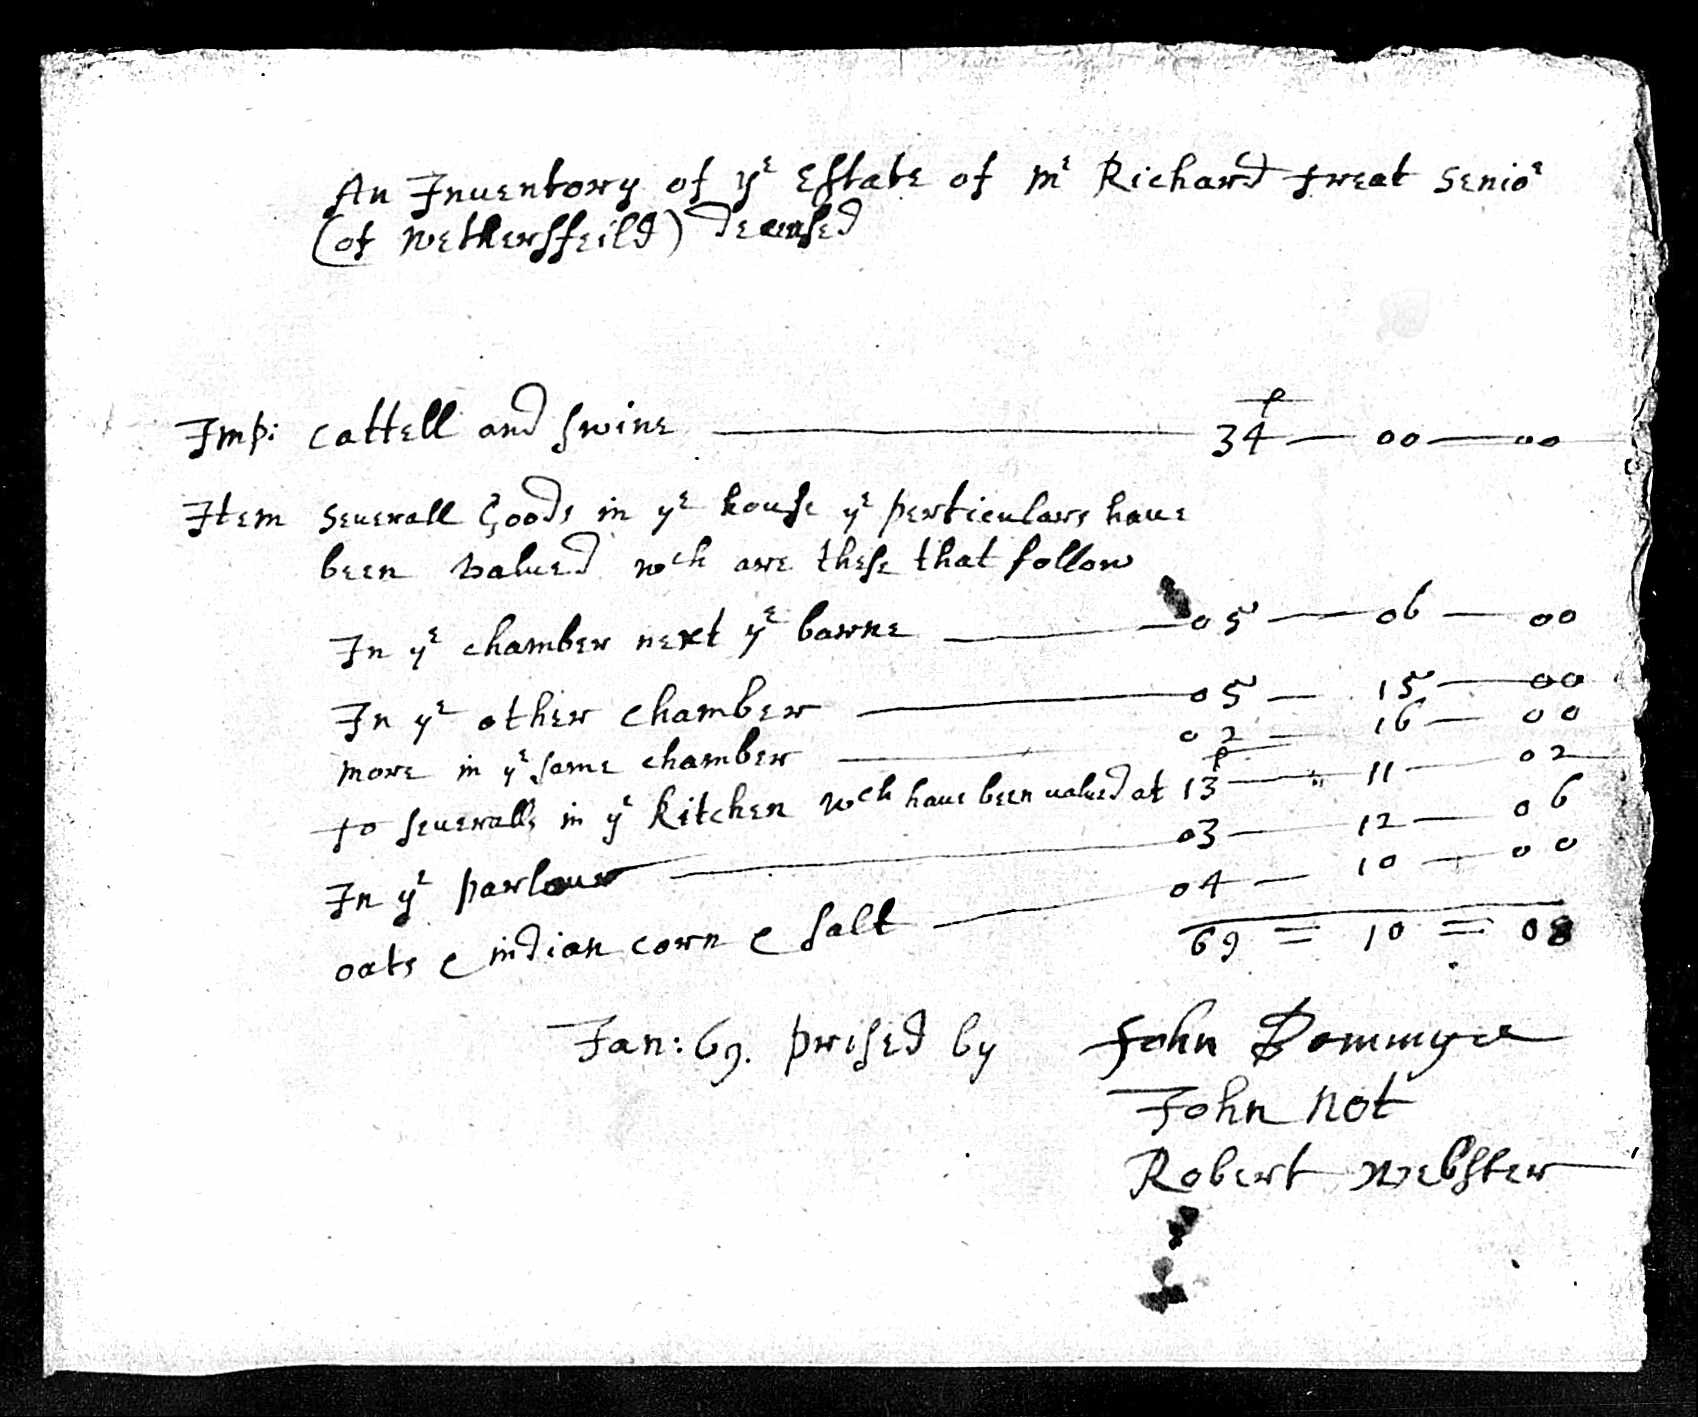 An Inuentory of yᵉ Estate of mʳ Richard treat senioʳ
(of wethersfeild) deceased
Imp: cattell and swine 34 — 00 — 00
Item seuerall Goods in yᵉ house yᵉ perticulars haue
been valued wch are these that follow
In yᵉ chamber next yᵉ barne 05 — 06 — 00
In yᵉ other chamber 05 — 15 — 00
more in yᵉ same chamber 02 — 16 — 00
to seueralls in yᵉ kitchen wch haue been valued at 13 — 11 — 02
In yᵉ parlour 03 — 12 — 06
oats & indian corn & salt 04 — 10 — 00
69 = 10 = 08
Jan: 69. prised by John
John Not
Robert Webster